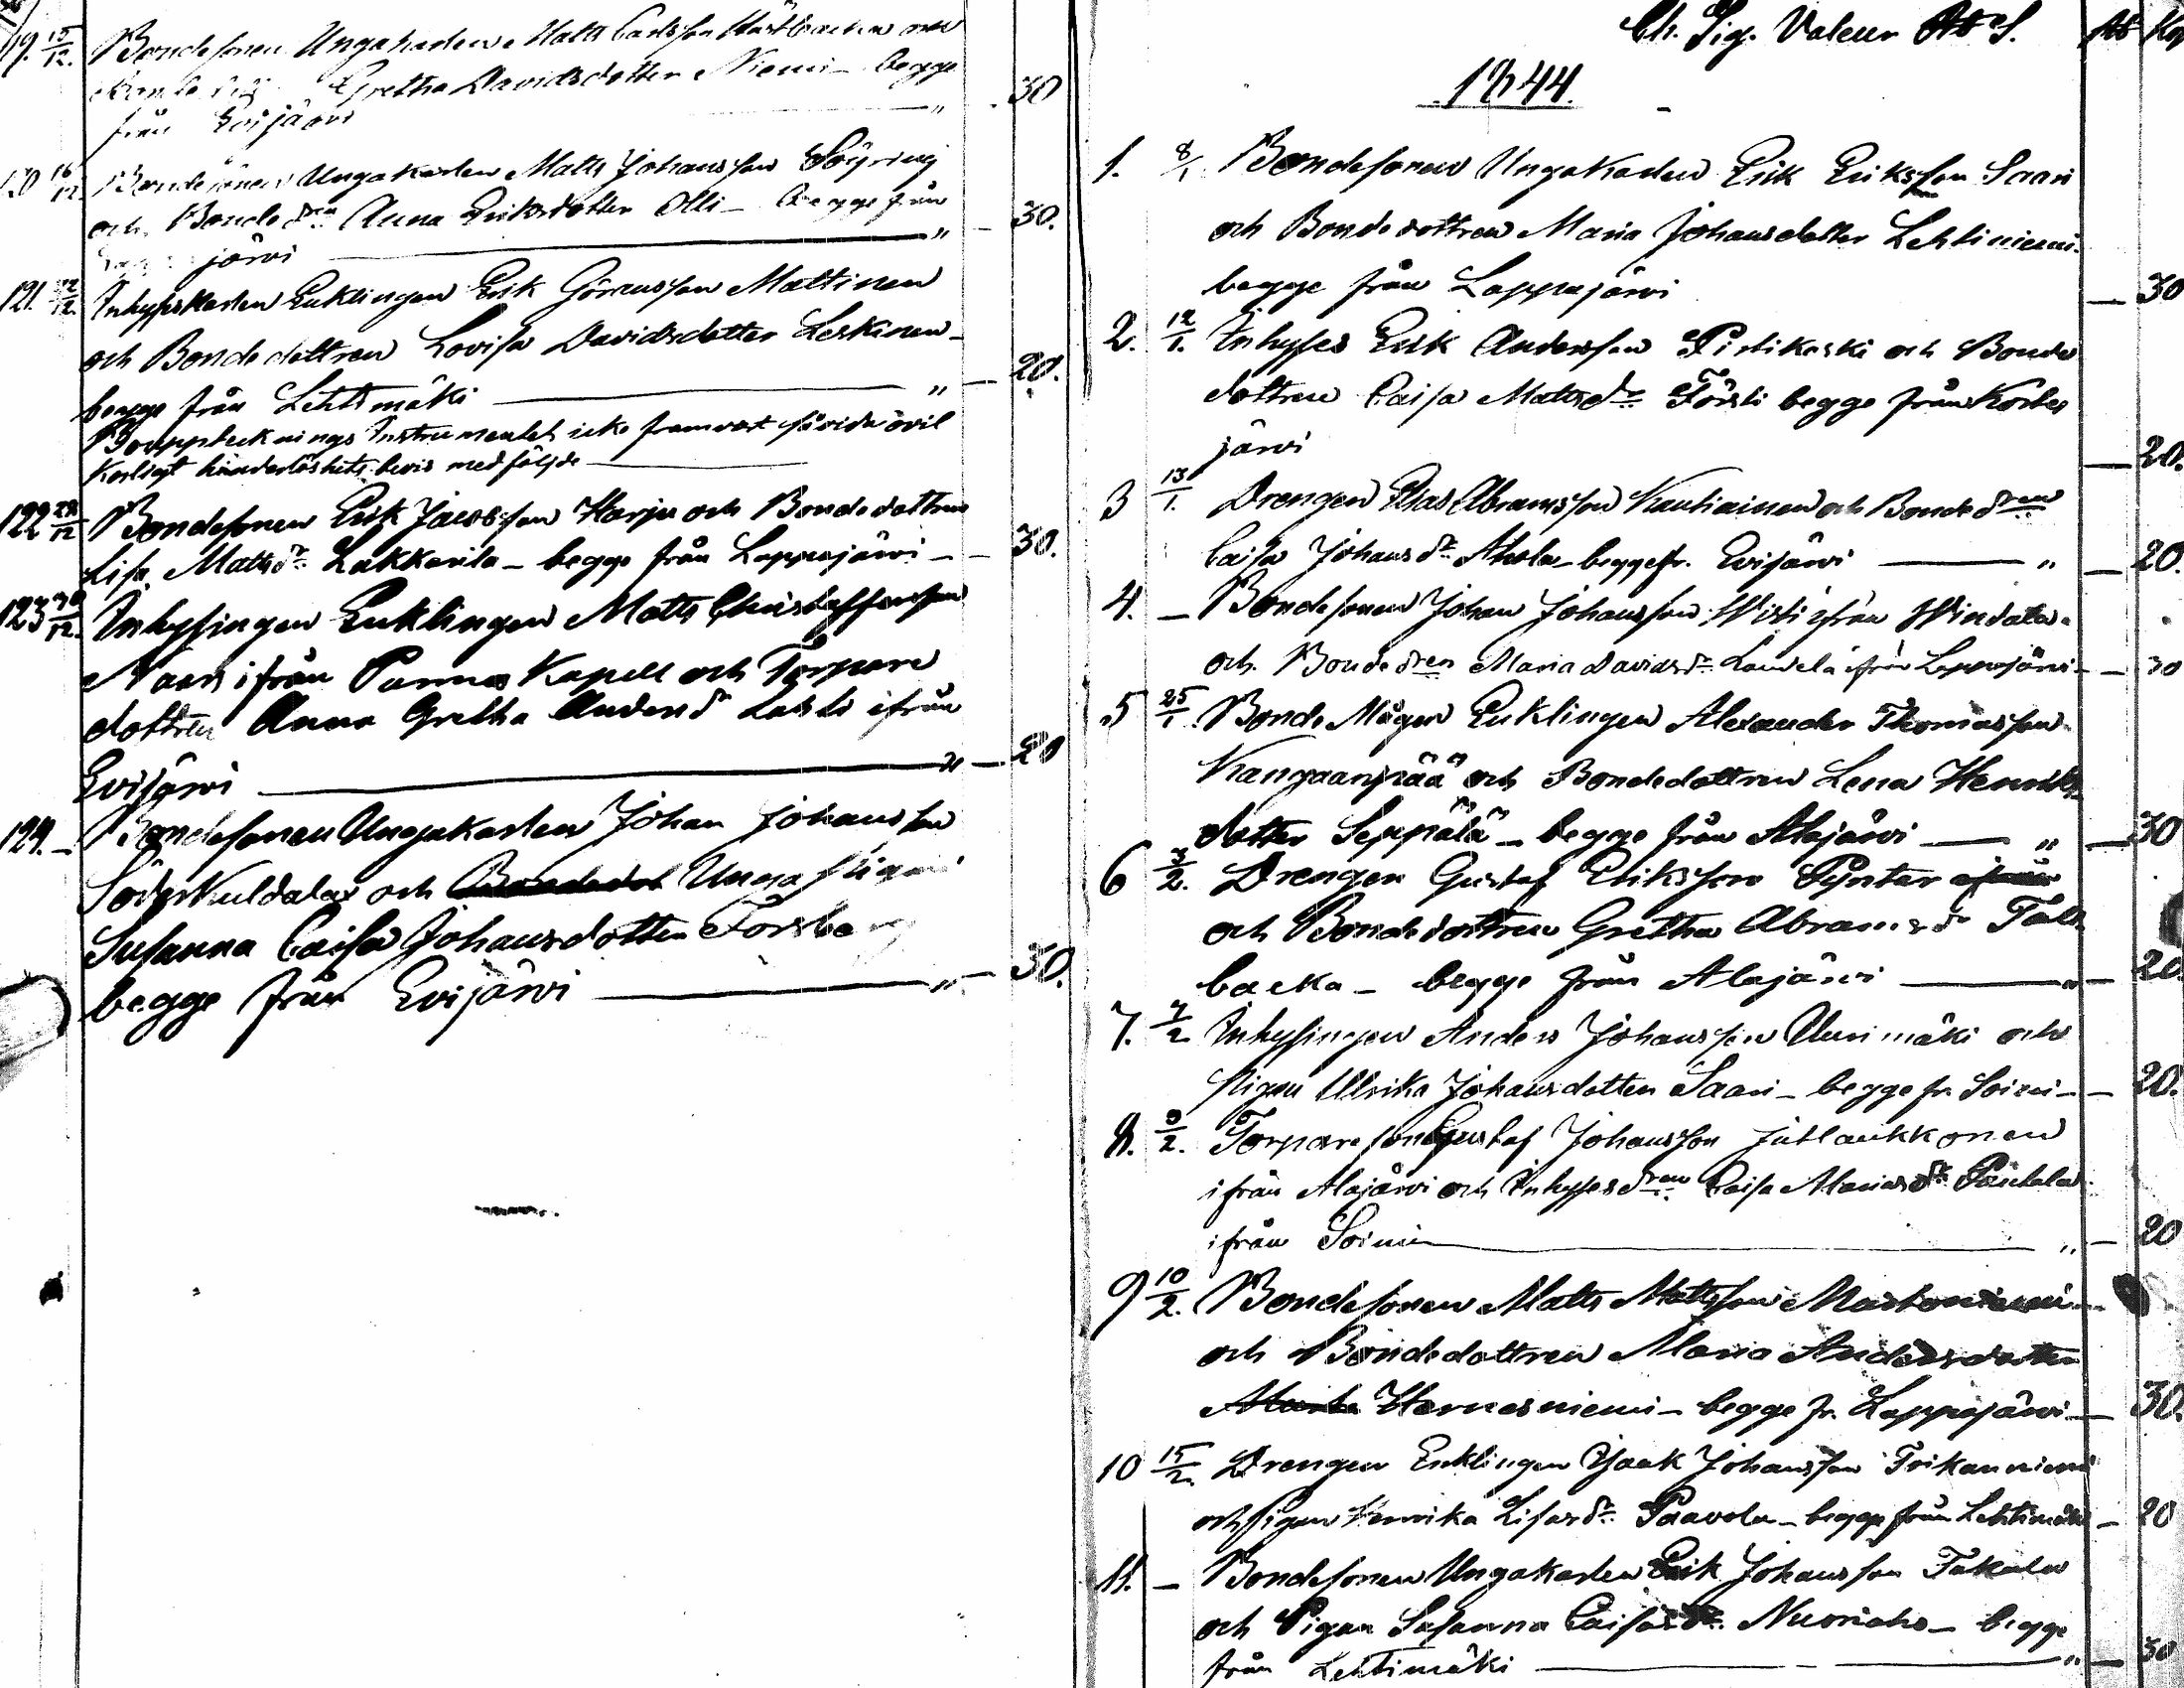 119. 15/12. Bondesonen Ungakarlen Matts Carlsson och
Gretha Davidsdotter Niemi – begge
från Evijärvi " - 30
120 16/12. Bondesonen Ungakarlen Matts Johansson
och Bonde dren Anna Eriksdotter Olli – begge från
järvi " - 30.
121. /12. Inhyseskarlen Enklingen Erik Göransson Mattinen
och Bondedottren Lovisa Davidsdotter Leskinen –
begge från Lehtimäki " - 20.
Boupptecknings Instrumentet icke
hinderlöshets bevis medföljde
122 /12 Bondesonen Erik Jacobsson Harju och Bondedottren
Lisa Mattsdr Lakkarila – begge från Lappajärvi - - 30.
123 30/12. Inhysingen Enklingen Matts Christoffersson
ifrån Kapell och Torpare
dottren Anna Gretha Andersdr Lahti ifrån
Evijärvi " - 20
124. - Bondesonen Ungakarlen Johan Johansson
och Bondedot Unga pigan
Susanna Caisa Johansdotter
begge från Evijärvi " - 30.
Ch. Sig. Valeur Rb S. Rb Kop
1844.
1. 8/1 Bondesonen Ungakarlen Erik Eriksson Saari
och Bondedottren Maria Johansdotter Lehtiniemi
begge från Lappajärvi - 30
2. 12/1. Inhyses Erik Andersson och Bonde
dottren Caisa Mattsdr Försti begge från Kortes
järvi - 20.
3 13/1. Drengen Elias Abramsson Kautiainen och Bondedren
Caisa Johansdr Ahola – begge fr. Evijärvi " - 20.
4. - Bondesonen Johan Johansson Wisti ifrån Windala
och Bondedren Maria Davidsdr ifrån Lappajärvi - - 30
5 25/1. Bonde Mågen Enklingen Alexander Thomasson
Kangaanpää och Bondedottren Lena Henriks
dotter Seppälä – begge från Alajärvi " - 30
6 3/2. Drengen Gustaf Eriksson ifrån
och Bondedottren Gretha Abramsdr Tall
backa – begge från Alajärvi " - 20
7. 7/2 Inhysingen Anders Johansson Uusimäki och
pigan Ulrika Johansdotter Saari – begge fr. Soini - - 20.
8. 9/2. Torparesonen Gustaf Johansson
ifrån Alajärvi och Inhysesdren Caisa Mariasdr
ifrån Soini " - 20
9 10/2. Bondesonen Matts Mattsson Martoniemi
och Bondedottren Maria Andersdotter
Hernesniemi – begge fr. Lappajärvi - 30.
10 15/2. Drengen Enklingen Isaak Johansson
och pigan Henrika Lisasdr Paavola – begge från Lehtimäki - 20
11. - Bondesonen Ungakarlen Erik Johansson Takala
och Pigan Susanna Caisasdr Nuoriaho – begge
från Lehtimäki " - 30